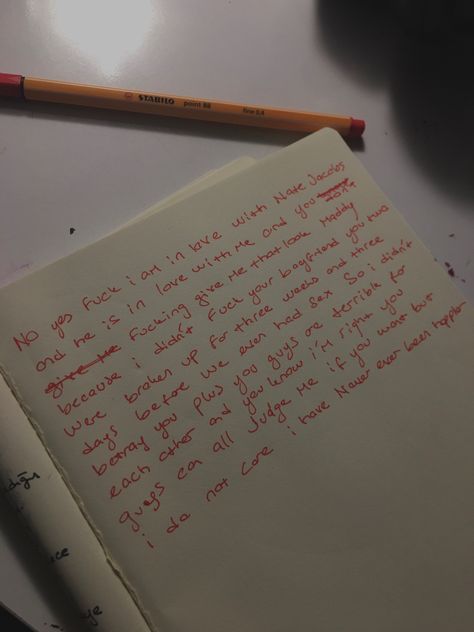 STABILO point 88 fine 0,4
No yes fuck i am in love with Nate Jacobs
and he is in love with me and you don't
give me fucking give me that look Maddy
because i didn't fuck your boyfriend you two
were broken up for three weeks and three
days before we even had sex so i didn't
betray you plus you guys are terrible for
each other and you know i'm right you
guys can all judge me if you want but
i do not care i have Never ever been happier